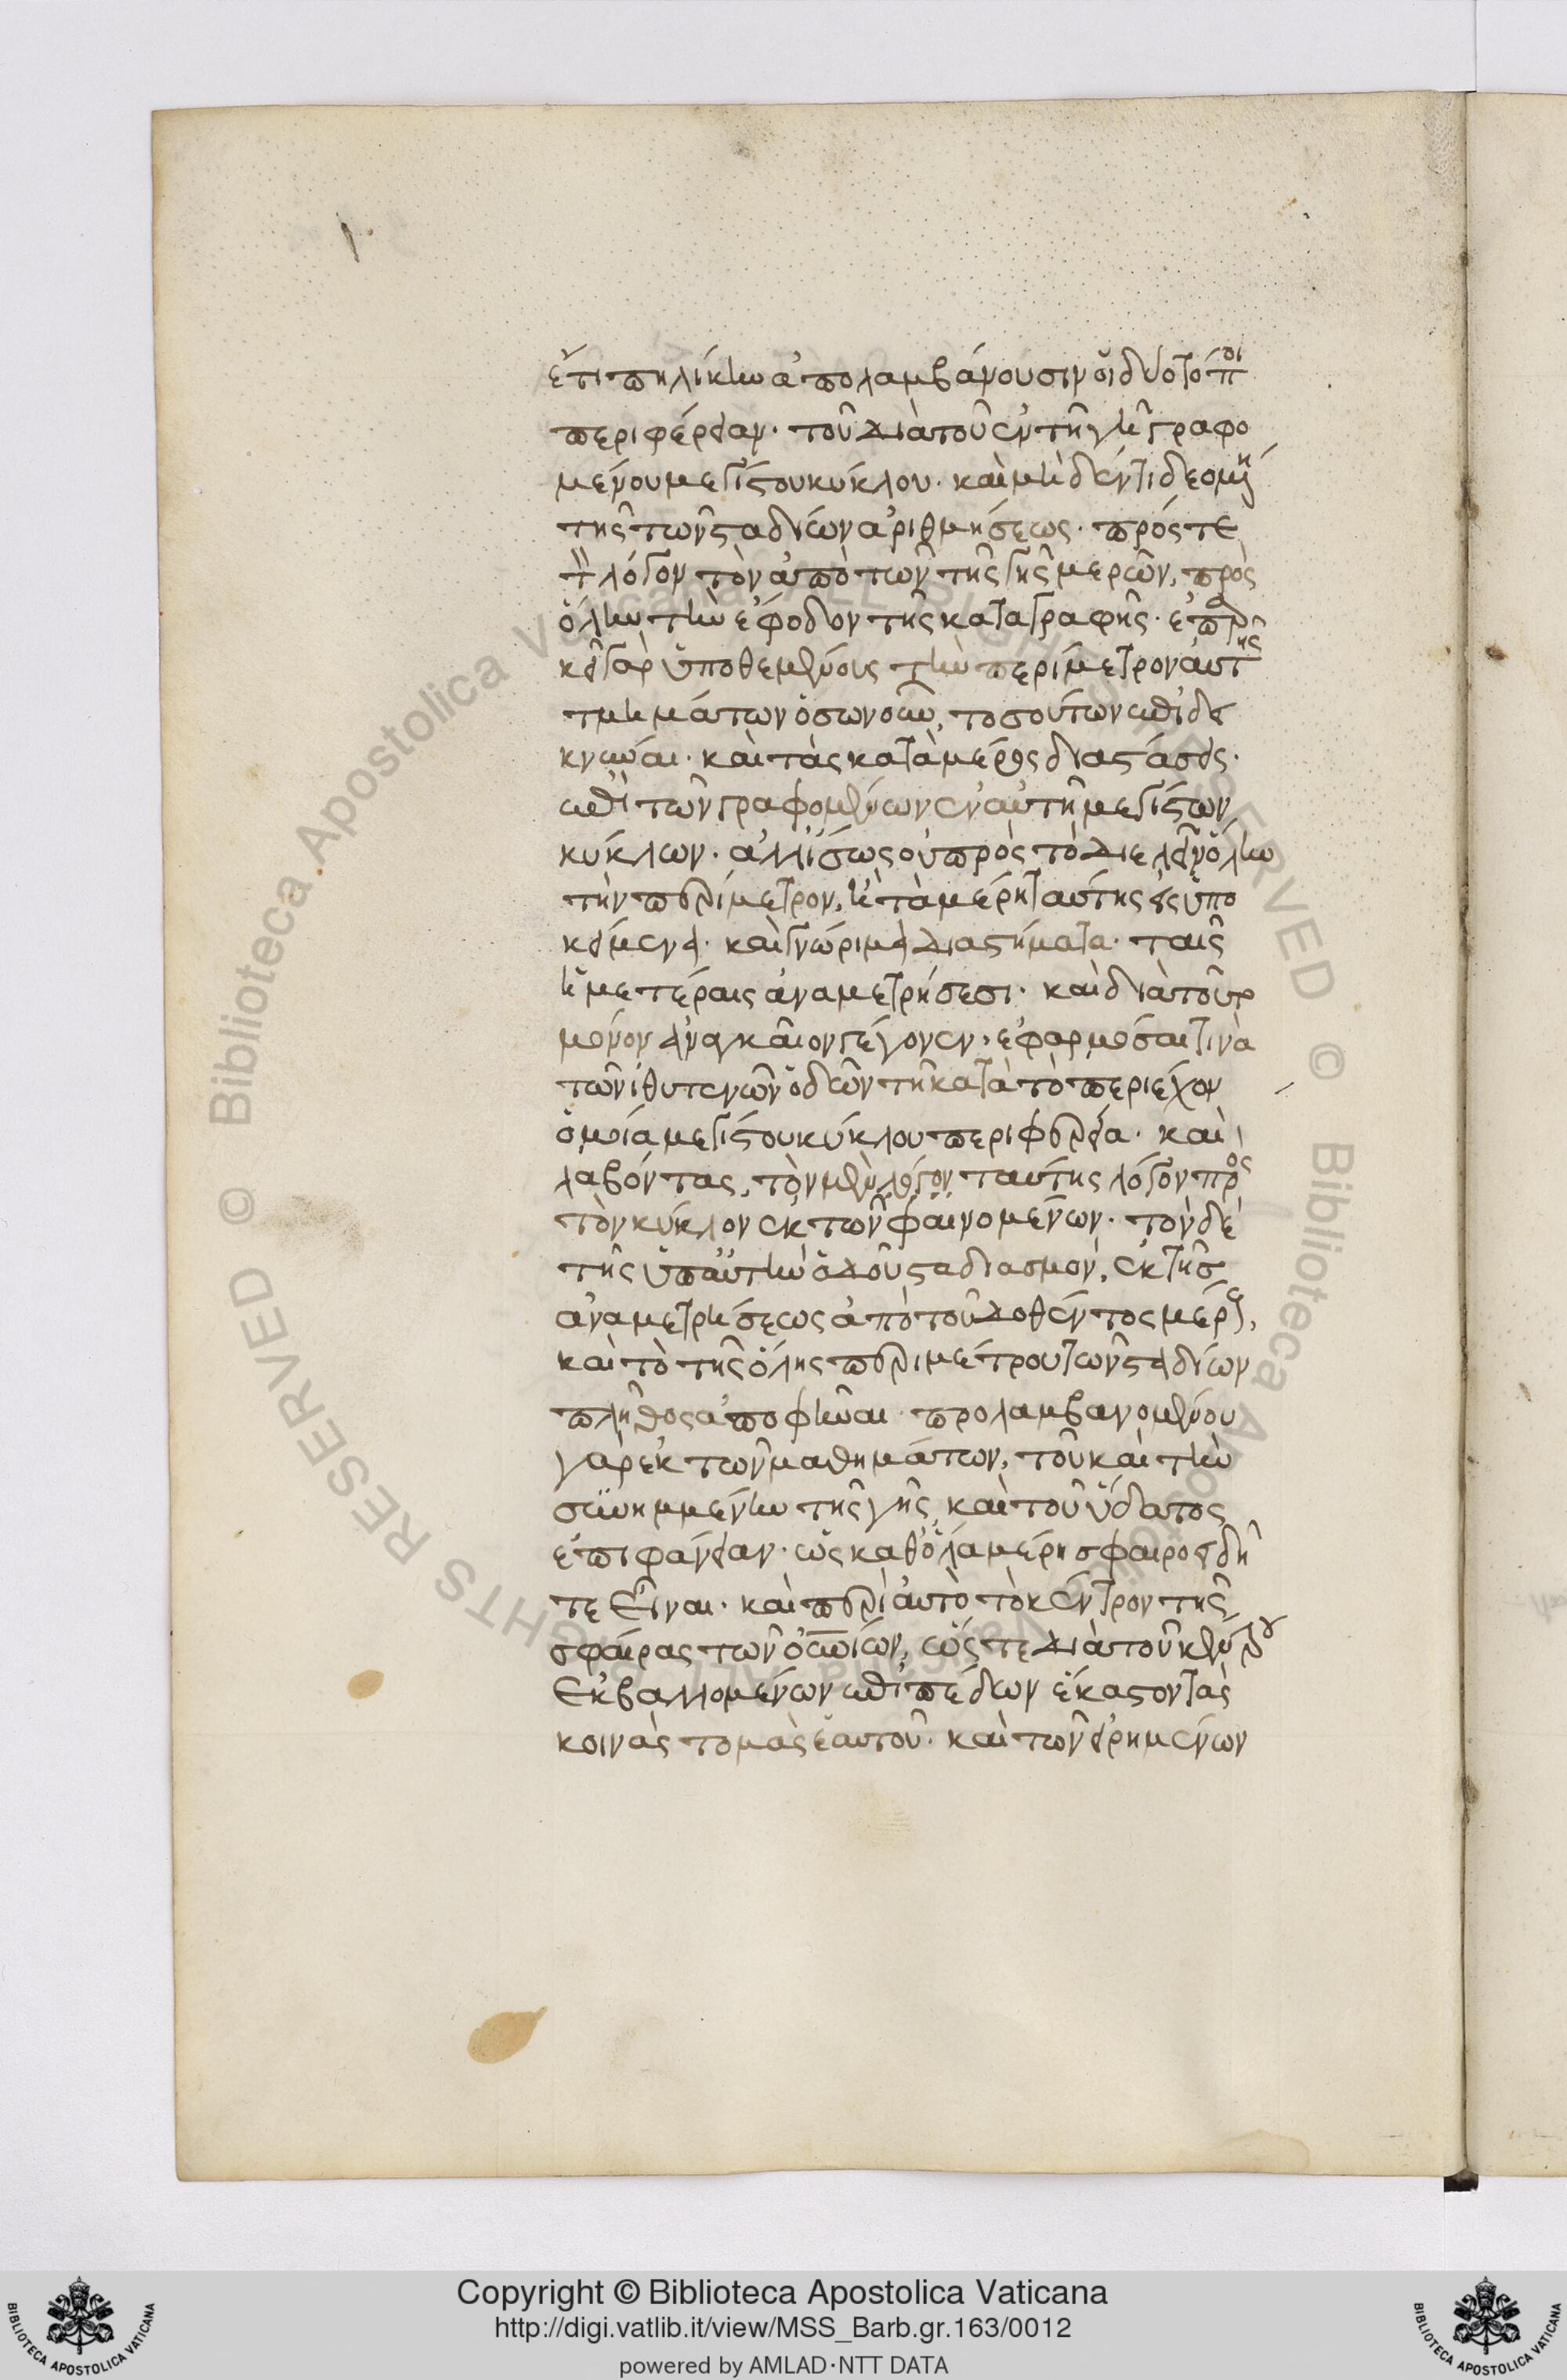 ἔτι πηλίκην ἀπολαμβάνουσιν οἱ δύο τόποι
περιφέρειαν· τοῦ διὰ τοῦ ἐν τῇ γῇ γραφο
μένου μεγίστου κύκλου· καὶ μὴδέν τι δεομένη
τῆς τῶν σταδίων ἀριθμήσεως· πρός τε
τὸν λόγον τὸν ἀπὸ τῶν τῆς γῆς μερῶν, πρὸς
ὅλην τὴν ἔφοδον τῆς καταγραφῆς·
γὰρ ὑποθεμένοις τὴν περίμετρον αὐτῆς
τμημάτων ὅσων οὖν, τοσούτων ἐπιδει
κνύναι· καὶ τὰς κατὰ μέρος διαστάσεις·
ἐπὶ τῶν γραφομένων ἐν αὐτῇ μεγίστων
κύκλων· ἀλλ' ἴσως οὐ πρὸς τὸ διελεῖν ὅλην
τὴν περίμετρον, ἢ τὰ μέρη ταύτης εἰς ὑπο
κείμενα· καὶ γνώριμα διαστήματα· ταῖς
ἡμετέραις ἀναμετρήσεσι· καὶ διὰ τοῦτο
μόνον ἀναγκαῖον γέγονεν, ἐφαρμόσαι τινὰ
τῶν ἰθυτενῶν ὁδῶν τῇ κατὰ τὸ περιέχον
ὁμοία μεγίστου κύκλου περιφερεία· καὶ
λαβόντας, τὸν μὲν λόγον ταύτης λόγον πρὸς
τὸν κύκλον ἐκ τῶν φαινομένων· τὸν δὲ
τῆς ὑπ' αὐτὴν ὁδοῦ σταδιασμόν, ἐκ τῆς
ἀναμετρήσεως ἀπὸ τοῦ δοθέντος μέρους,
καὶ τὸ τῆς ὅλης περιμέτρου τῶν σταδίων
πλῆθος ἀποφῆναι· προλαμβανομένου
γὰρ ἐκ τῶν μαθημάτων, τοῦ καὶ τὴν
συνημμένην τῆς γῆς, καὶ τοῦ ὕδατος
ἐπιφάνειαν· ὡς καθ' ὅλα μέρη σφαιροειδῆ
τε εἶναι· καὶ περὶ αὐτὸ τὸ κέντρον τῆς
σφαίρας τῶν οὐρανίων, ὥστε διὰ τοῦ κέντρου
ἐκβαλλομένων ἐπιπέδων ἕκαστον τὰς
κοινὰς τομὰς ἑαυτοῦ· καὶ τῶν εἰρημένων
Copyright © Biblioteca Apostolica Vaticana
http://digi.vatlib.it/view/MSS_Barb.gr.163/0012
powered by AMLAD·NTT DATA